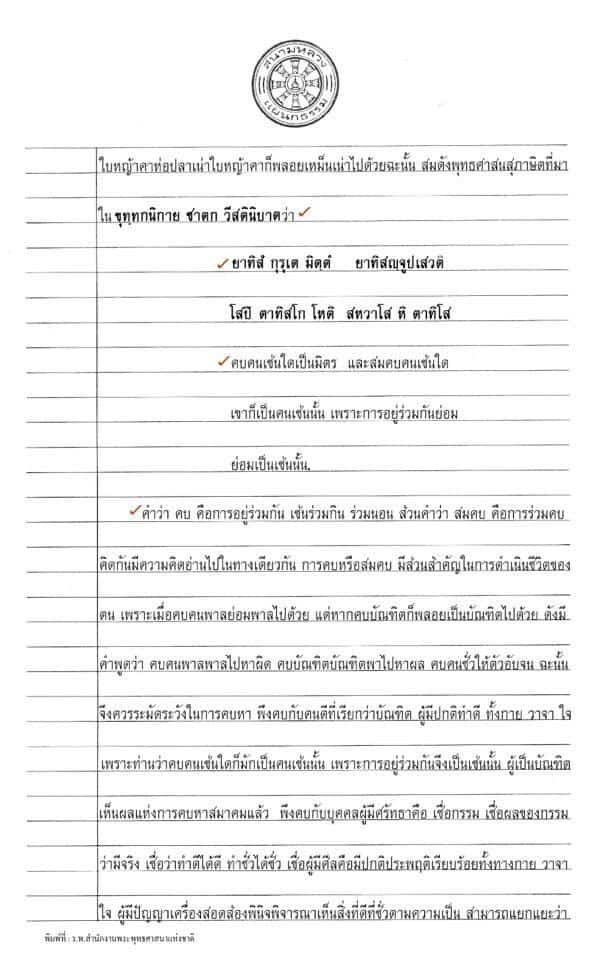 สนามหลวง
แผนกธรรม
ใบหญ้าคาห่อปลาเน่าใบหญ้าคาก็พลอยเหม็นเน่าไปด้วยฉะนั้น สมดังพุทธศาสนสุภาษิตที่มา
ใน ขุทฺทกนิกาย ชาตก วีสตินิบาตว่า
ยาทิสํ กุรุเต มิตฺตํ ยาทิสญฺจูปเสวติ
โสปิ ตาทิสโก โหติ สหวาโส หิ ตาทิโส
คบคนเช่นใดเป็นมิตร และสมคบคนเช่นใด
เขาก็เป็นคนเช่นนั้น เพราะการอยู่ร่วมกันย่อม
ย่อมเป็นเช่นนั้น.
คำว่า คบ คือการอยู่ร่วมกัน เช่นร่วมกิน ร่วมนอน ส่วนคำว่า สมคบ คือการร่วมคบ
คิดกันมีความคิดอ่านไปในทางเดียวกัน การคบหรือสมคบ มีส่วนสำคัญในการดำเนินชีวิตของ
ตน เพราะเมื่อคบคนพาลย่อมพาลไปด้วย แต่หากคบบัณฑิตก็พลอยเป็นบัณฑิตไปด้วย ดังมี
คำพูดว่า คบคนพาลพาลไปหาผิด คบบัณฑิตบัณฑิตพาไปหาผล คบคนชั่วให้ตัวอับจน ฉะนั้น
จึงควรระมัดระวังในการคบหา พึงคบกับคนดีที่เรียกว่าบัณฑิต ผู้มีปกติทำดี ทั้งกาย วาจา ใจ
เพราะท่านว่าคบคนเช่นใดก็มักเป็นคนเช่นนั้น เพราะการอยู่ร่วมกันจึงเป็นเช่นนั้น ผู้เป็นบัณฑิต
เห็นผลแห่งการคบหาสมาคมแล้ว พึงคบกับบุคคลผู้มีศรัทธาคือ เชื่อกรรม เชื่อผลของกรรม
ว่ามีจริง เชื่อว่าทำดีได้ดี ทำชั่วได้ชั่ว เชื่อผู้มีศีลคือมีปกติประพฤติเรียบร้อยทั้งทางกาย วาจา
ใจ ผู้มีปัญญาเครื่องสอดส่องพินิจพิจารณาเห็นสิ่งที่ดีที่ชั่วตามความเป็น สามารถแยกแยะว่า
พิมพ์ที่ : ร.พ.สำนักงานพระพุทธศาสนาแห่งชาติ